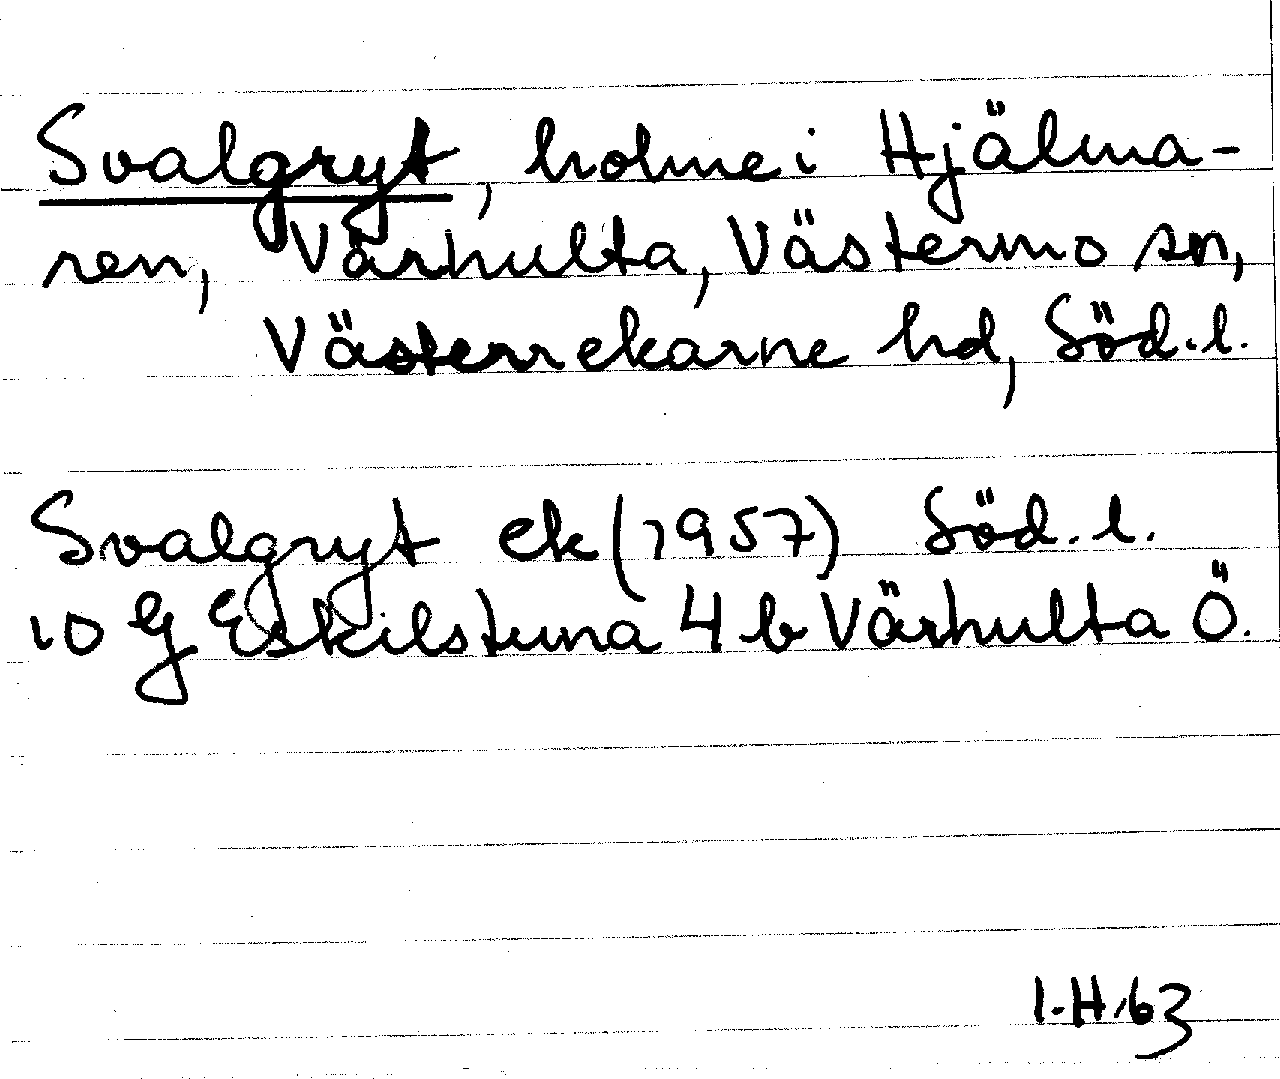 Svalgryt, holme i Hjälma-
ren, Värhulta, Västermo sn,
Västerrekarne hd, Söd. l.
Svalgryt ek (1957) Söd. l.
10 G Eskilstuna 4 b Värhulta Ö.
I.H. 63